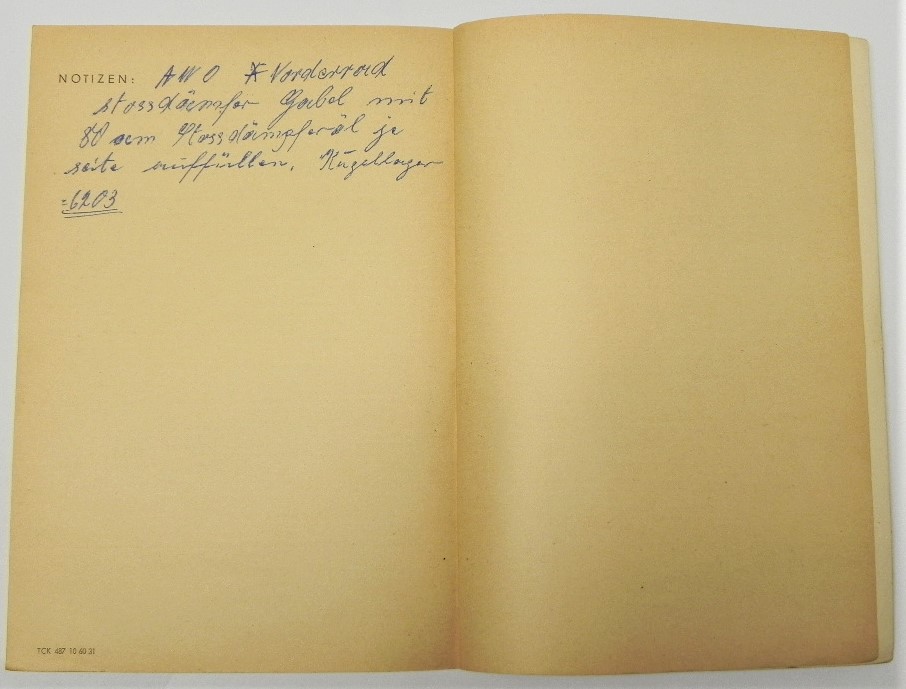 NOTIZEN: AWO Vorderrad
stossdämpfer Gabel mit
80 ccm Stossdämpferöl je
seite auffüllen. Kugellager
=6203
TCK 487 10 60 31